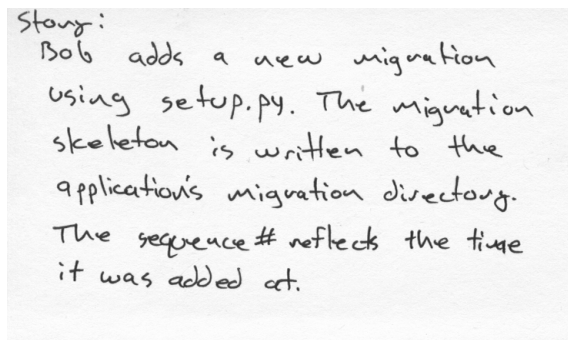 Story:
Bob adds a new migration
using setup.py. The migration
skeleton is written to the
application's migration directory.
The sequence # reflects the time
it was added at.